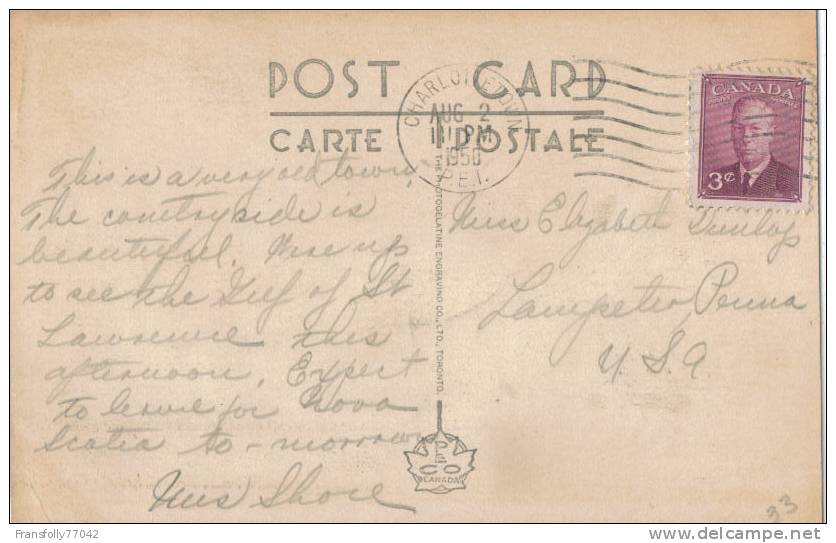 POST CARD
CARTE POSTALE
CHARLOTTETOWN
AUG 2
11 PM
1950
P.E.I.
CANADA
POSTES POSTAGE
3¢
This is a very old town,
The countryside is
beautiful. Were up
to see the Gulf of St
Lawrence this
afternoon. Expect
to leave for Nova
Scotia to-morrow
Miss Shore
Miss Elizabeth Dunlap
Lampeter, Penna
U.S.A
THE PHOTOGELATINE ENGRAVING CO., LTD., TORONTO.
CO
CANADA
33
Fransfolly77042
www.delcampe.net